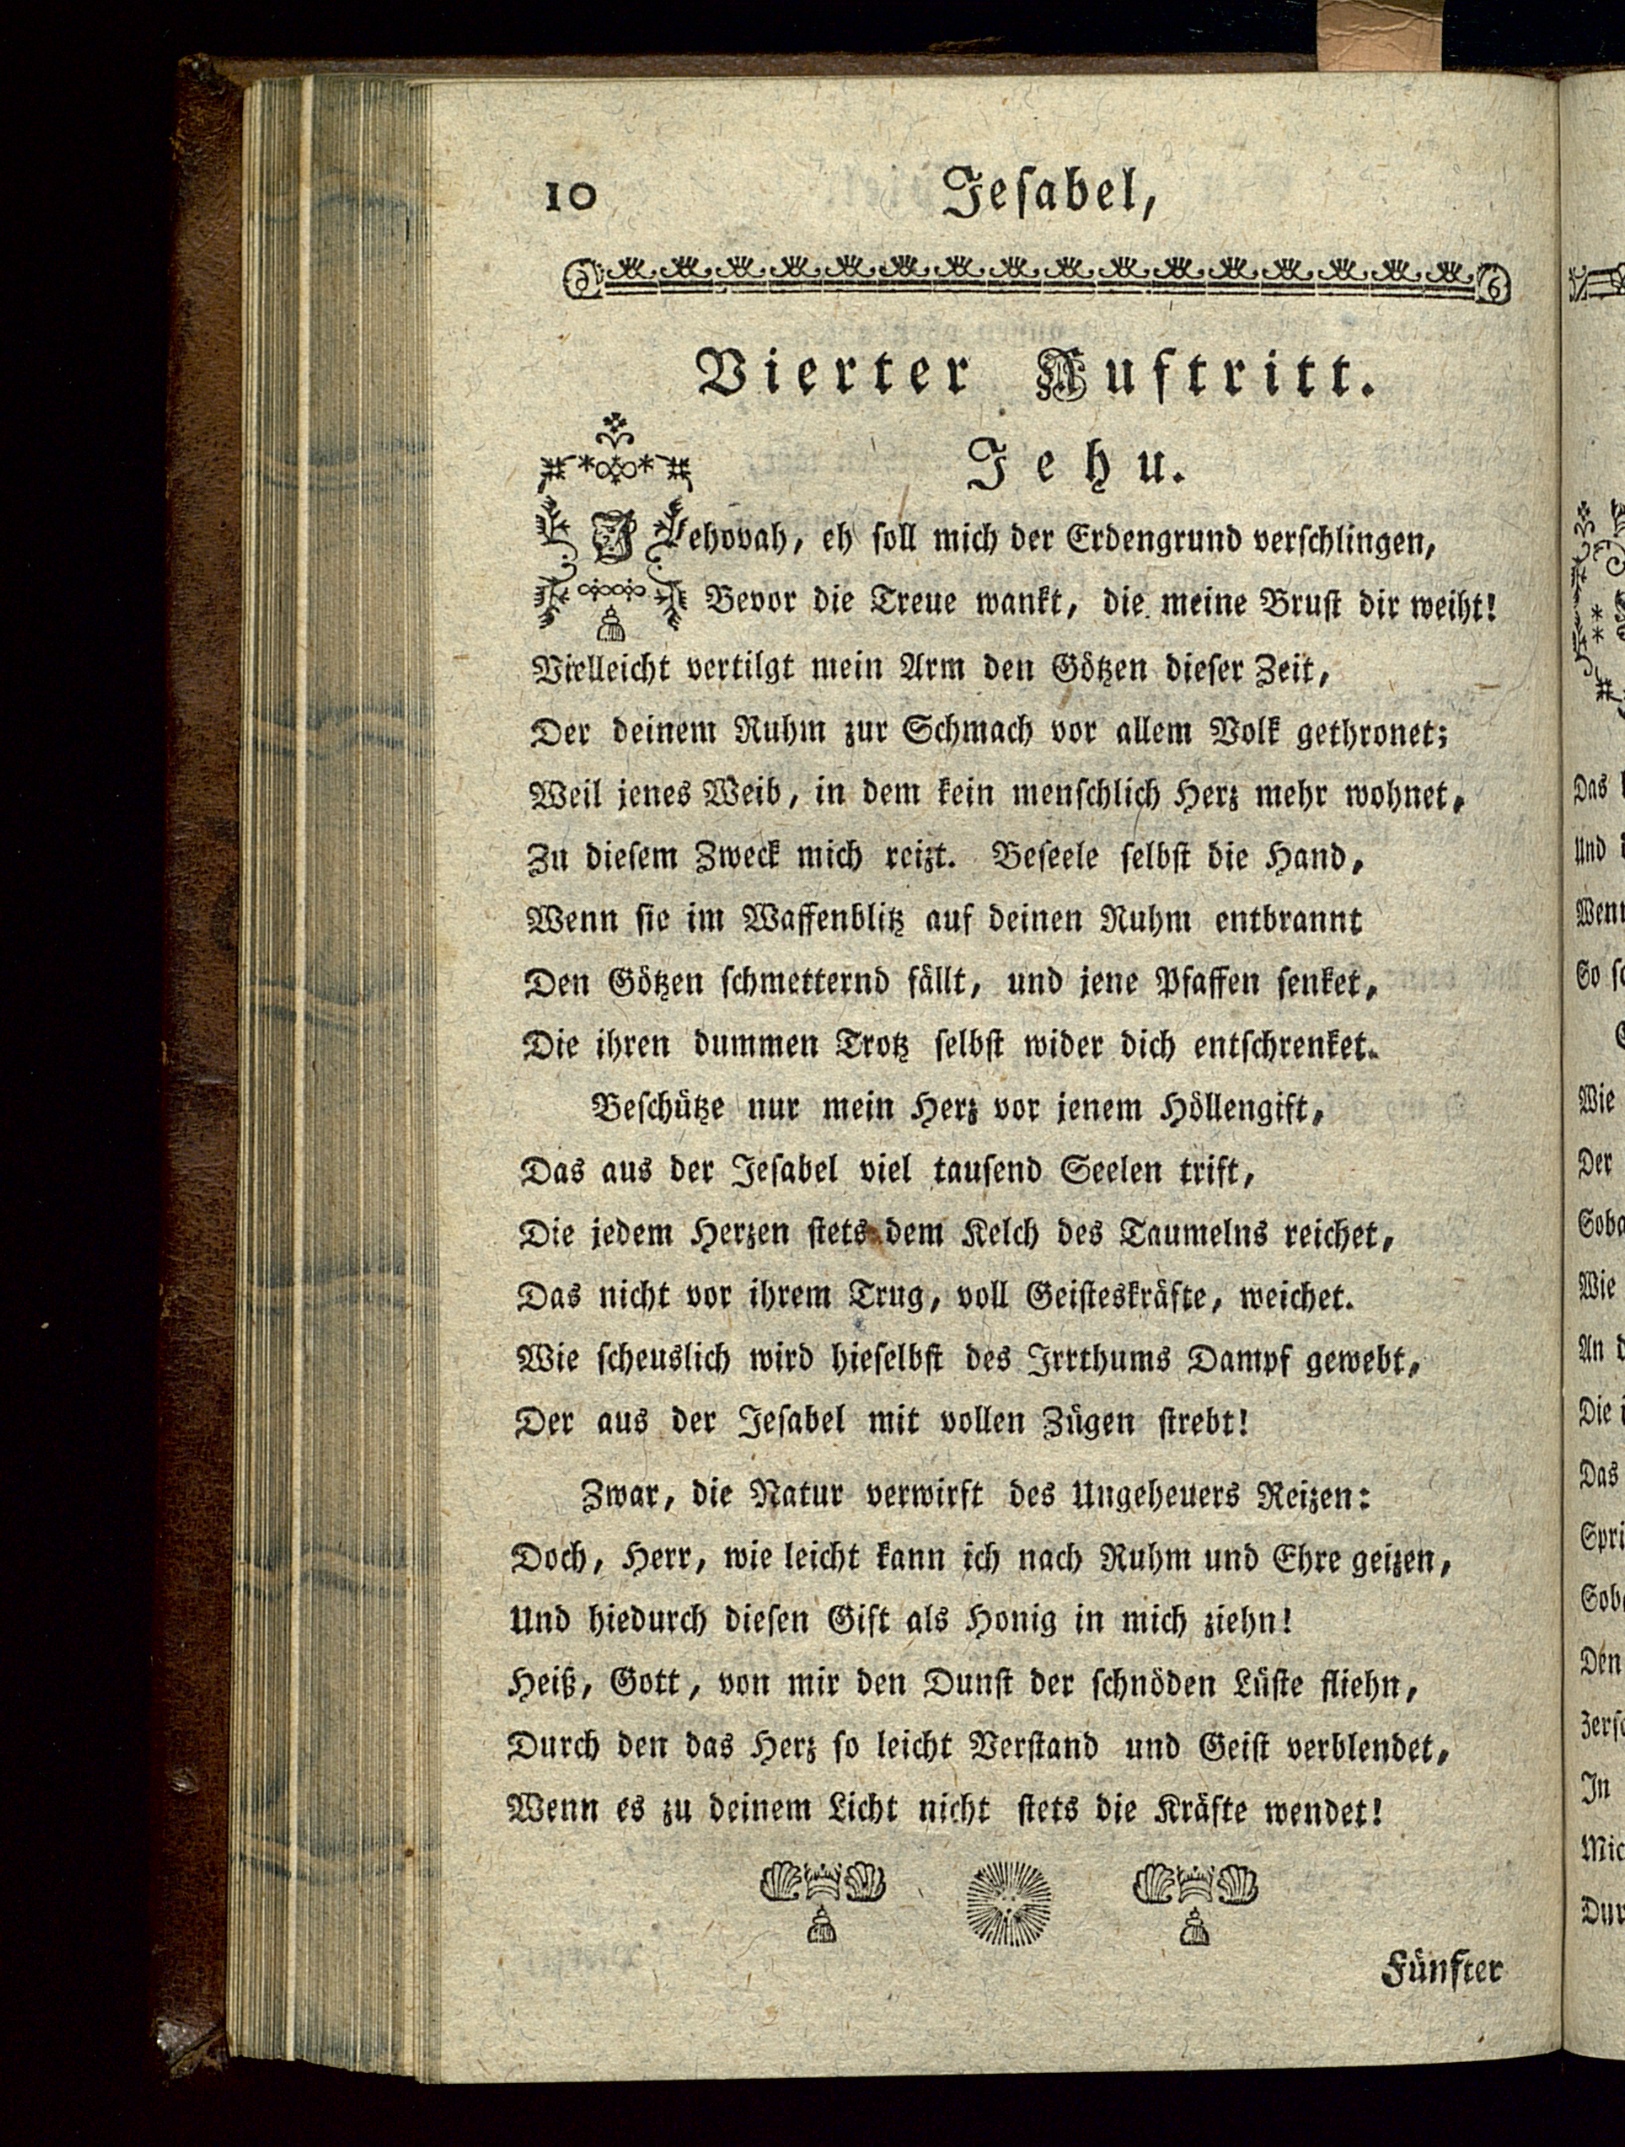 10 Jesabel,
Vierter Auftritt.
Jehu.
Jehovah, eh soll mich der Erdengrund verschlingen,
Bevor die Treue wankt, die meine Brust dir weiht!
Vielleicht vertilgt mein Arm den Götzen dieser Zeit,
Der deinem Ruhm zur Schmach vor allem Volk gethronet;
Weil jenes Weib, in dem kein menschlich Herz mehr wohnet,
Zu diesem Zweck mich reizt. Beseele selbst die Hand,
Wenn sie im Waffenblitz auf deinen Ruhm entbrannt
Den Götzen schmetternd fällt, und jene Pfaffen senket,
Die ihren dummen Trotz selbst wider dich entschrenket.
Beschütze nur mein Herz vor jenem Höllengift,
Das aus der Jesabel viel tausend Seelen trift,
Die jedem Herzen stets dem Kelch des Taumelns reichet,
Das nicht vor ihrem Trug, voll Geisteskräfte, weichet.
Wie scheuslich wird hieselbst des Irrthums Dampf gewebt,
Der aus der Jesabel mit vollen Zügen strebt!
Zwar, die Natur verwirft des Ungeheuers Reizen:
Doch, Herr, wie leicht kann ich nach Ruhm und Ehre geizen,
Und hiedurch diesen Gift als Honig in mich ziehn!
Heiß, Gott, von mir den Dunst der schnöden Lüste fliehn,
Durch den das Herz so leicht Verstand und Geist verblendet,
Wenn es zu deinem Licht nicht stets die Kräfte wendet!
Fünfter
Das
Und
So
Wie
Der
Wie
An
Die
Das
Den
In